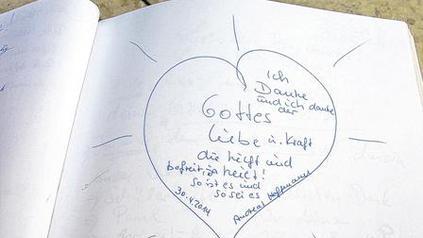 Ich
Danke
und ich danke
der
Gottes
Liebe u. Kraft
die hilft und
befreit u. heilt!
So ist es und
so sei es
30.4.2014
Andrea Hoffmann